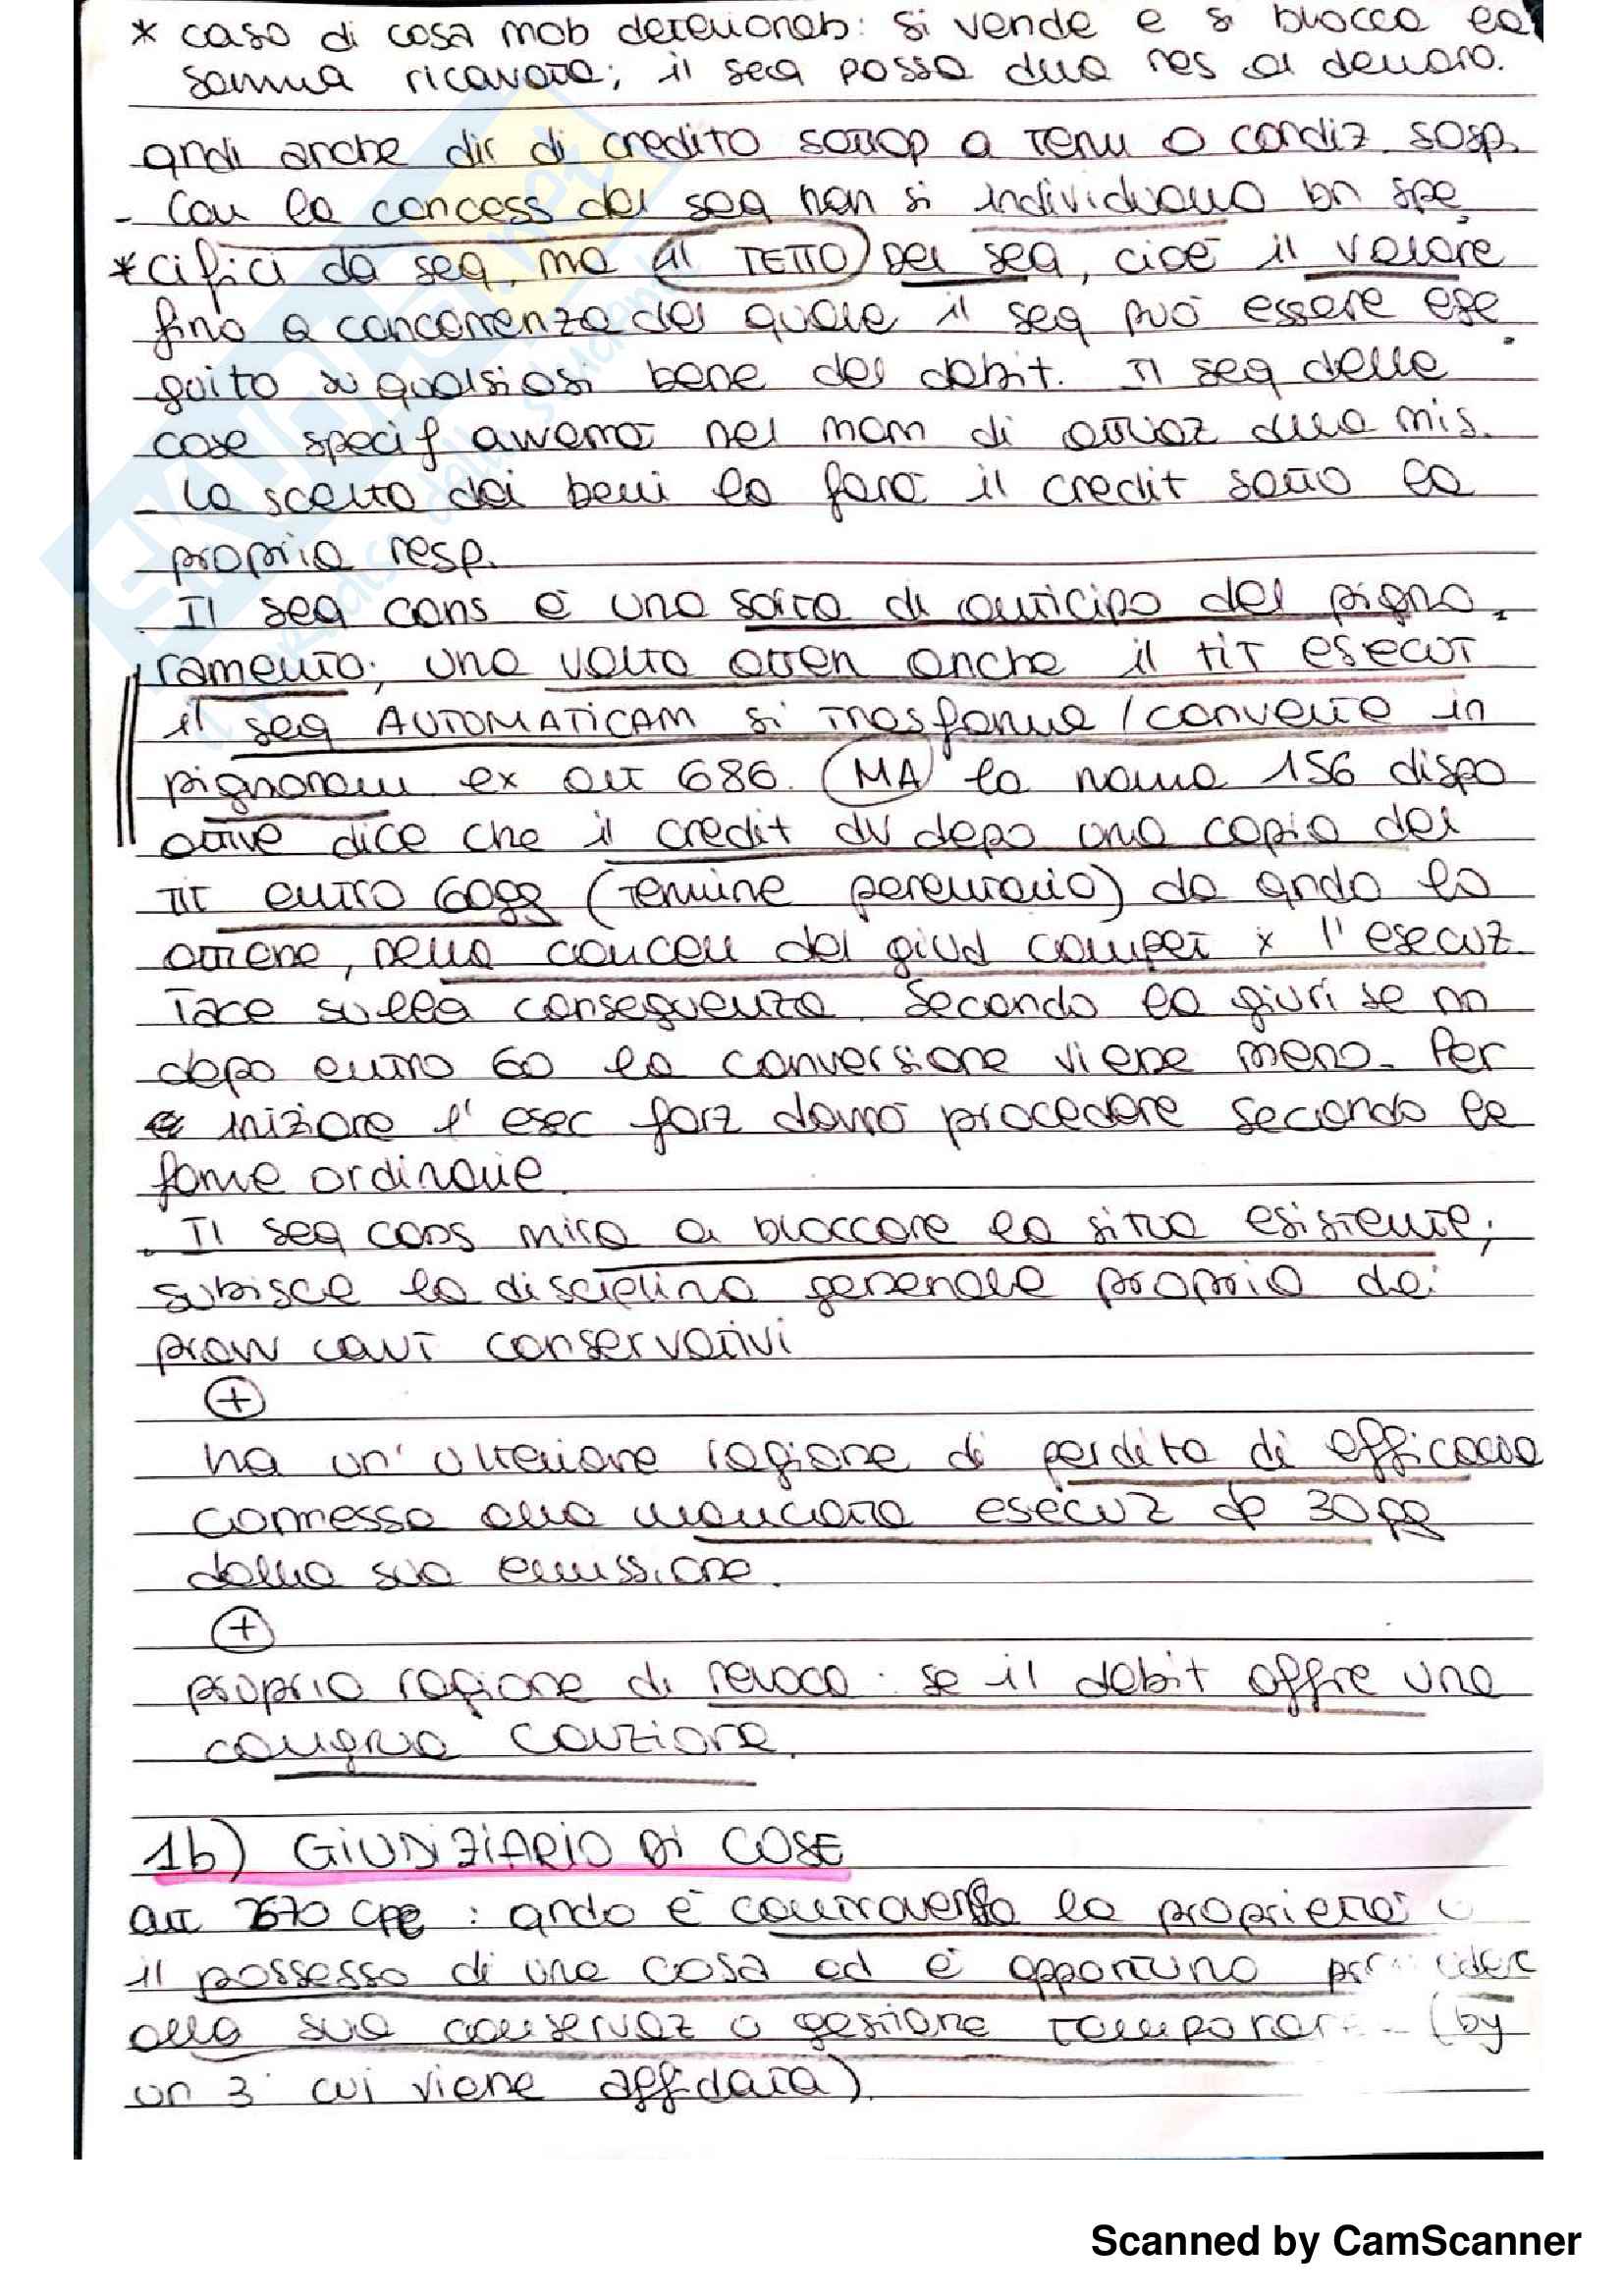 * caso di cosa mob deteriorab: si vende e si blocca la
somma ricavata; il seq passa dalla res al denaro.
qndi anche dir di credito sottop a term o condiz. sosp.
- Con la concess del seq non si individuano bn spe
* cifici da seq, ma il TETTO del seq, cioè il valore
fino a concorrenza del quale il seq può essere ese
guito su qualsiasi bene del debit. Il seq delle
cose specif avverrà nel mom di attuaz della mis.
- La scelta dei beni la farà il credit sotto la
propria resp.
. Il seq cons è una sorta di anticipo del pigno
ramento; una volta otten anche il tit esecut
il seq AUTOMATICAM si trasforma / converte in
pignoram ex art 686. (MA) la norma 156 dispo
attive dice che il credit dv depo una copia del
tit entro 60gg (termine perentorio) da qndo lo
ottiene, nella cancell del giud compet x l'esecuz.
Tace sulla conseguenza. Secondo la giuri se nn
depo entro 60 la conversione viene meno. Per
iniziare l'esec forz dovrò procedere secondo le
forme ordinarie.
. Il seq cons mira a bloccare la situa esistente;
subisce la disciplina generale propria dei
provv caut conservativi
+
ha un' ulteriore ragione di perdita di efficacia
connessa alla mancata esecuz dp 30gg
dalla sua emissione.
+
propria ragione di revoca: se il debit offre una
congrua cauzione.
1b) GIUDIZIARIO DI COSE
art 670 cpc : qndo è controversa la proprietà o
il possesso di una cosa ed è opportuno
alla sua conservaz o gestione (by
un 3° cui viene affidata).
Scanned by CamScanner